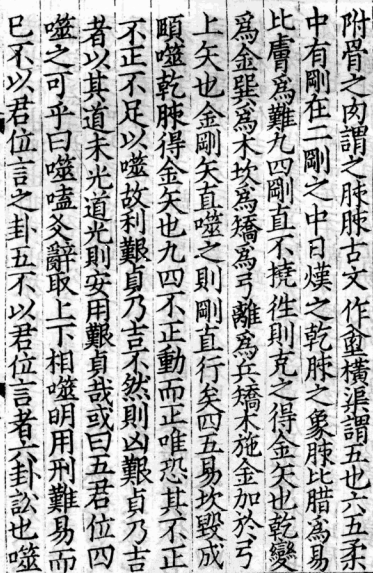 附骨之肉謂之胏胏古文作𠕎橫渠謂五也六五柔
中有剛在二剛之中日熯之乾胏之象胏比腊爲易
比膚爲難九四剛直不撓往則克之得金矢也乾變
爲金巽爲木坎爲矯爲弓離爲兵矯木施金加於弓
上矢也金剛矢直噬之則剛直行矣四五易坎毀成
頤噬乾胏得金矢也九四不正動而正唯恐其不正
不正不足以噬故利艱貞乃吉不然則凶艱貞乃吉
者以其道未光道光則安用艱貞哉或曰五君位四
噬之可乎曰噬嗑爻辭取上下相噬明用刑難易而
已不以君位言之卦五不以君位言者六卦訟也噬